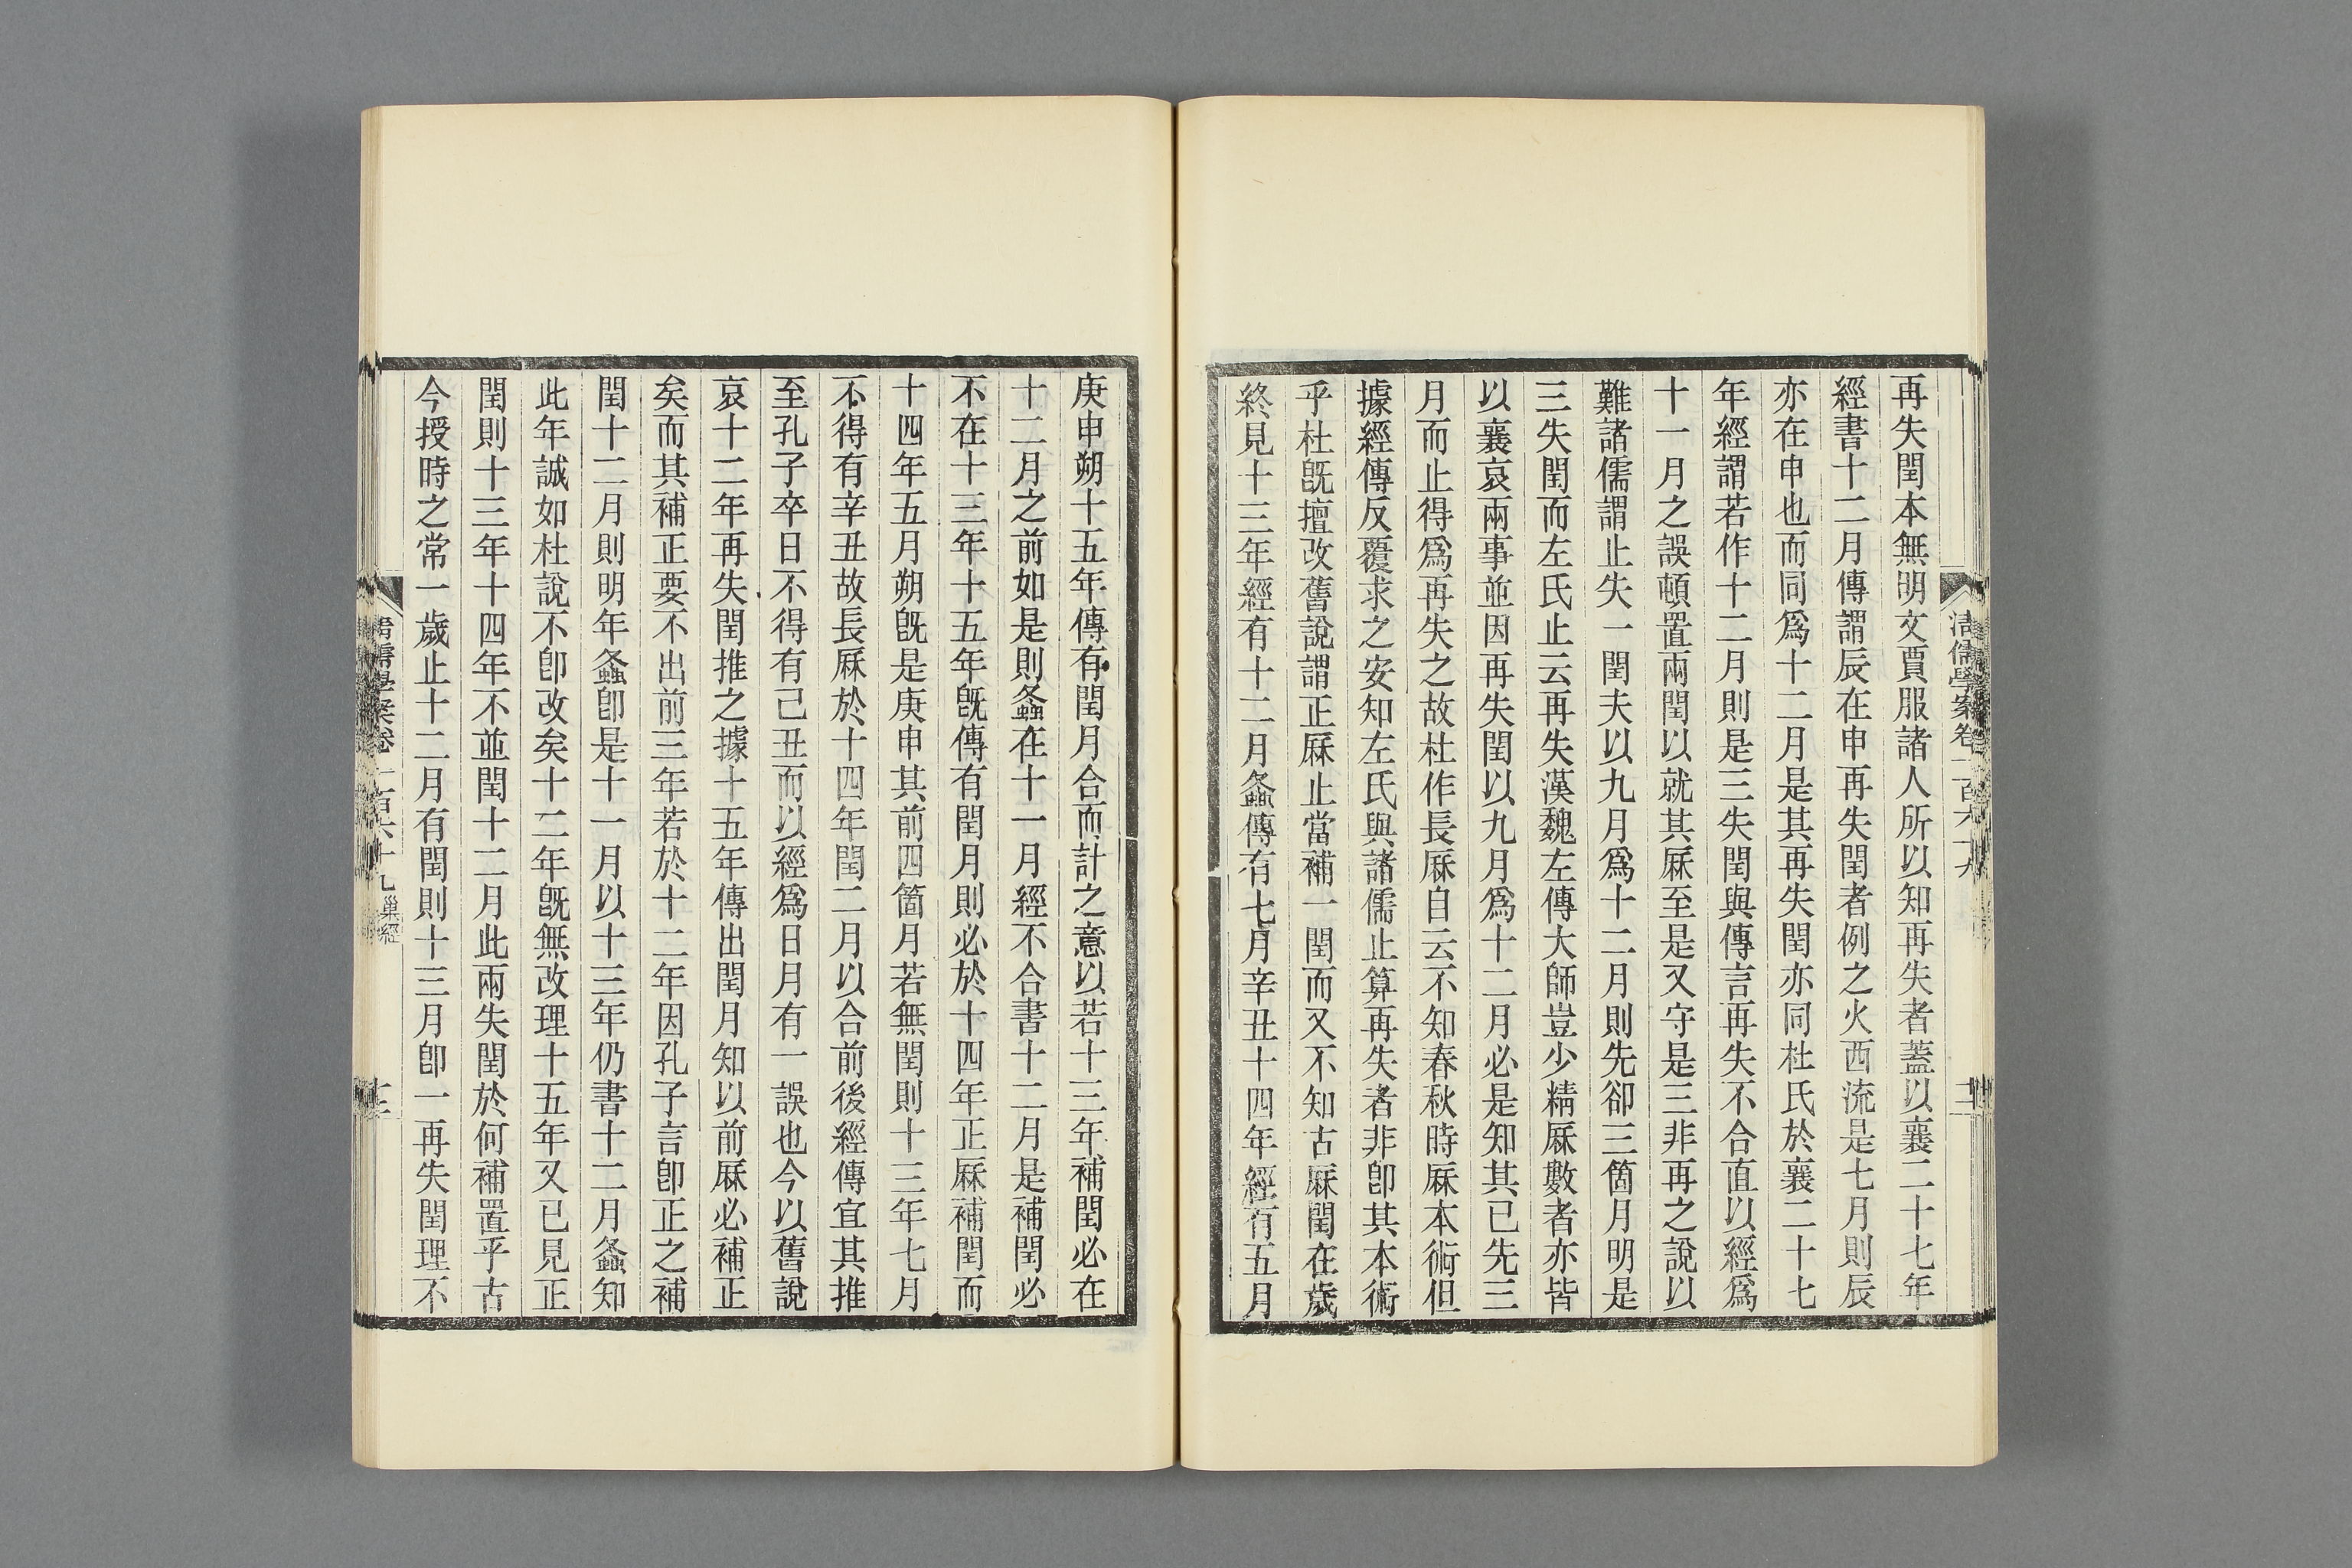 再失閏本無明文賈服諸人所以知再失者蓋以襄二十七年
經書十二月傳謂辰在申再失閏者例之火西流是七月則辰
亦在申也而同爲十二月是其再失閏亦同杜氏於襄二十七
年經謂若作十二月則是三失閏與傳言再失不合直以經爲
十一月之誤頓置兩閏以就其厤至是又守是三非再之說以
難諸儒謂止失一閏夫以九月爲十二月則先卻三箇月明是
三失閏而左氏止云再失漢魏左傳大師豈少精厤數者亦皆
以襄哀兩事並因再失閏以九月爲十二月必是知其已先三
月而止得爲再失之故杜作長厤自云不知春秋時厤本術但
據經傳反覆求之安知左氏與諸儒止算再失者非卽其本術
乎杜旣擅改舊說謂正厤止當補一閏而又不知古厤閏在歲
終見十三年經有十二月螽傳有七月辛丑十四年經有五月
庚申朔十五年傳有閏月合而計之意以若十三年補閏必在
十二月之前如是則螽在十一月經不合書十二月是補閏必
不在十三年十五年旣傳有閏月則必於十四年正厤補閏而
十四年五月朔旣是庚申其前四箇月若無閏則十三年七月
不得有辛丑故長厤於十四年閏二月以合前後經傳宜其推
至孔子卒日不得有己丑而以經爲日月有一誤也今以舊說
哀十二年再失閏推之據十五年傳出閏月知以前厤必補正
矣而其補正要不出前三年若於十二年因孔子言卽正之補
閏十二月則明年螽卽是十一月以十三年仍書十二月螽知
此年誠如杜說不卽改矣十二年旣無改理十五年又已見正
閏則十三年十四年不並閏十二月此兩失閏於何補置乎古
今授時之常一歲止十二月有閏則十三月卽一再失閏理不
清儒學案卷一百六十九 巢經